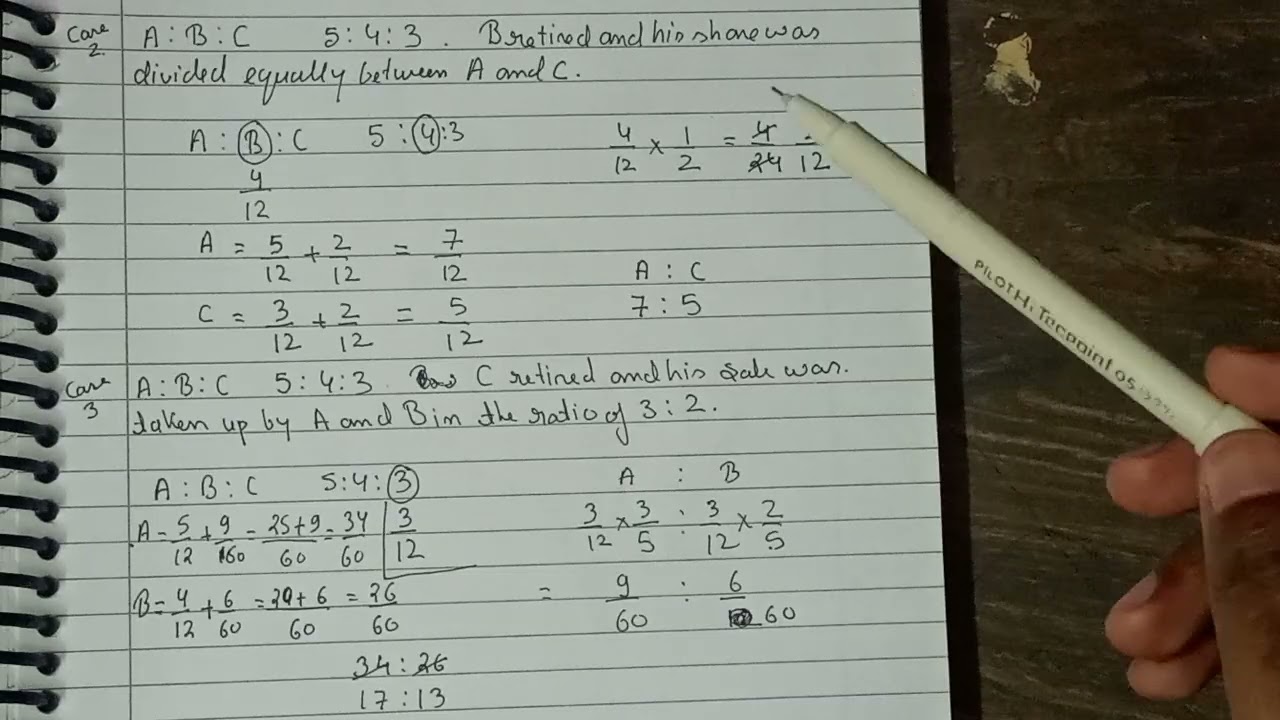 Case 2 A : B : C 5 : 4 : 3 . B retired and his share was
divided equally between A and C.
A : B : C 5 : 4 : 3
4/12
4/12 × 1/2 = 4/24 /12
A = 5/12 + 2/12 = 7/12
C = 3/12 + 2/12 = 5/12
A : C
7 : 5
Case 3 A : B : C 5 : 4 : 3 C retired and his was.
taken up by A and B in the ratio of 3 : 2.
A : B : C 5 : 4 : 3
3/12
A = 5/12 + 9/60 = 25+9/60 = 34/60
B = 4/12 + 6/60 = 20+6/60 = 26/60
34 : 26
17 : 13
A : B
3/12 × 3/5 : 3/12 × 2/5
= 9/60 : 6/60
PILOT Hi Tecpoint 05